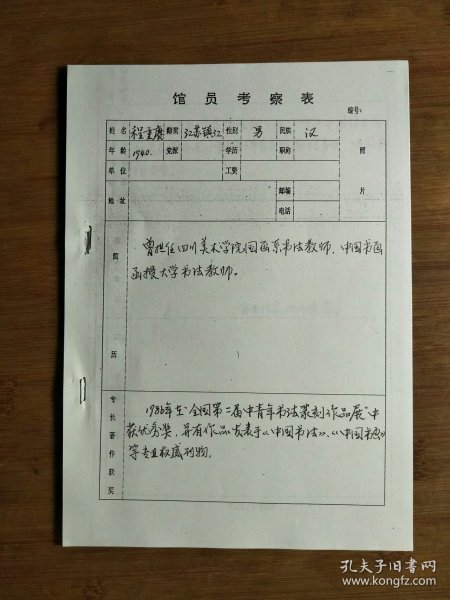 馆员考察表
编号:
姓名 程重庆 籍贯 江苏镇江 性别 男 民族 汉
年龄 1940. 党派 学历 职称 照
单位 工资
地址 邮编 片
电话
简
历
曾担任四川美术学院国画系书法教师,中国书画
函授大学书法教师。
专长著作获奖
1986年在"全国第二届中青年书法篆刻作品展"中
获优秀奖,并有作品发表于《中国书法》、《中国书画》
等专业权威刊物。
孔夫子旧书网
www.kongfz.com